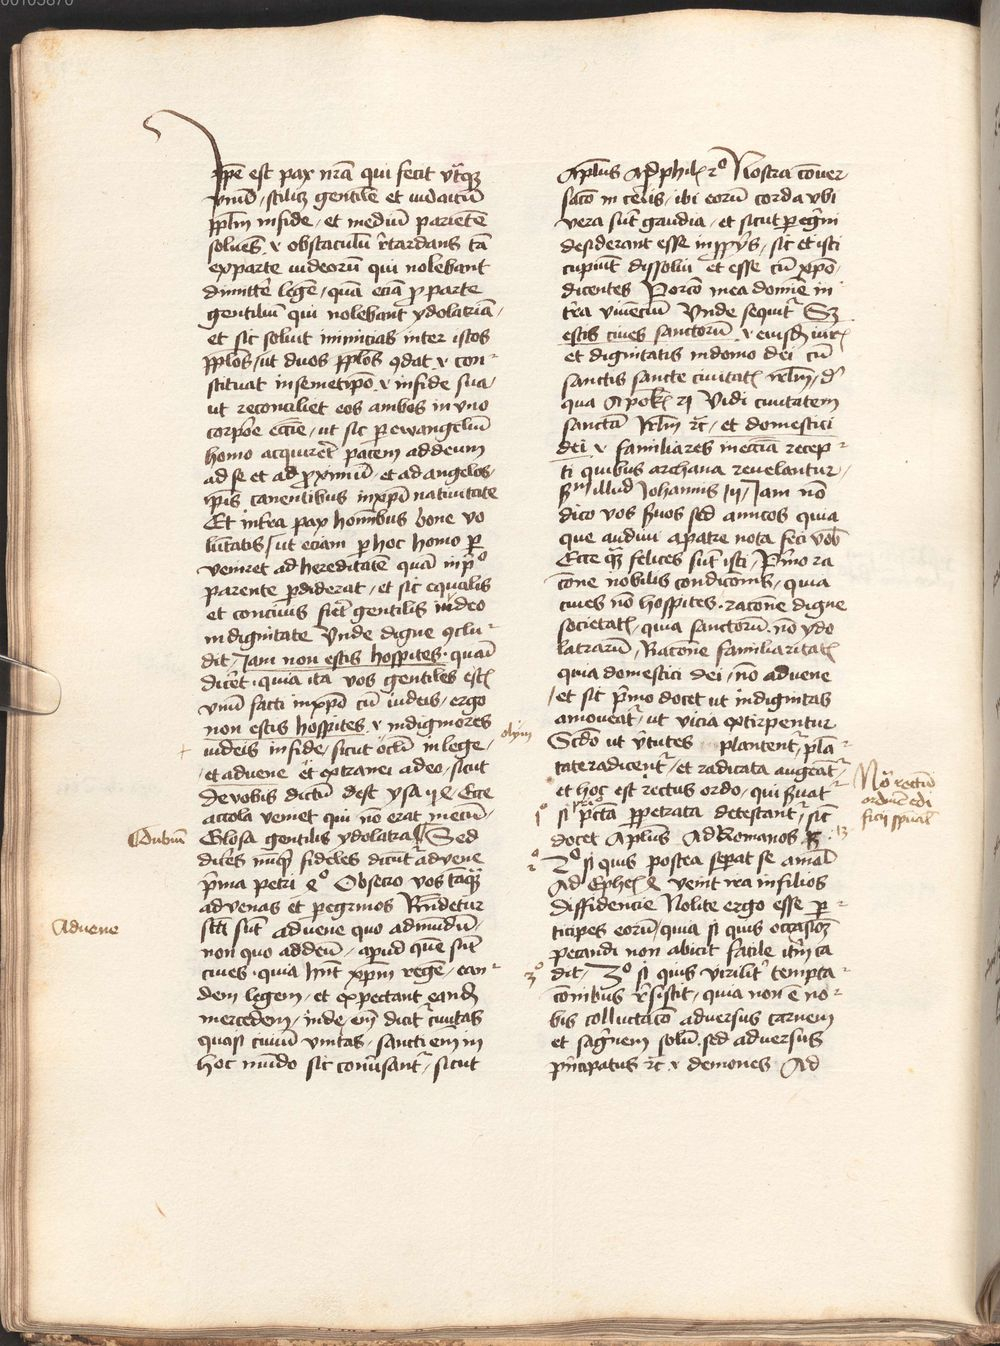 Ip̄e est pax nr̄a qui fecit vtᵃqꝫ
vnū, scilicꝫ gentilē et iudaicū
pplm̄ in fide, et mediū parietē
soluēs, ⁊ obstaculū retardans tā
ex parte iudeorū qui nolebant
dimittē legē, quā eciā ꝓ parte
gentiliū qui nolebant ydolatriā,
et sic soluit inimicias inter istos
pplos, ut duos pplos ꝯdat ⁊ con-
stituat in semetip̄o, ⁊ in fide sua,
ut reconciliet eos ambos in vno
corpore eccīe, ut sic ꝑ ewangeliū
homo acquireret pacem ad deum
ad se et ad ꝓximū, et ad angelos,
ip̄is canentibus in xpī natiuitate
Et in terra pax hoībus bone vo
lūtatis, ut eciam ꝑ hoc homo ꝑ
veniret ad hereditatē quā in pͦ
parente ꝑdiderat, et sic equalis
et conciuis fieret gentilis iudeo
in dignitate Vnde digne ꝯclu-
dit, Iam non estis hospites, quasi
diceret, quia ita vos gentiles estis
vnū facti in xpō cū iudeis, ergo
non estis hospites ⁊ indigniores
iudeis in fide, sicut olim in lege,
olym
et aduene et extranei a deo, sicut
de vobis dictū est ysa Ecce
accola veniet qui nō erat mecū,
Dubiū
Glosa gentilis ydolatra Sed
diceres nūqͥd fideles dicūtᵉ aduene
prima petri 2º Obsecro vos tāqᵃꝫ
aduenas et peregrinos Rn̄detur
Aduene
scī sūt aduene quo ad mūdū,
non quo ad deū, apud quē sūt
ciues, quia hn̄t xpm̄ regē, ean-
dem legem, et expectant eandē
mercedem, inde enī dicitᵉ ciuitas
quasi ciuiū vnitas, sancti enim in
hoc mūdo sic conuersantᵉ, sicut
Ap̄lus Ad phil 2º Nostra conuer
sacō in celis, ibi eorū corda vbi
vera sūt gaudia, et sicut peregrini
desiderant esse in pprijs, sic et isti
cupiūt dissolui et esse cū xpō,
dicentes Porcō mea domīe in
terra viuenciū Vnde sequitᵉ Sꝫ
estis ciues sanctorū, ⁊ eiusdē iuris
et dignitatis in domo dei cū
sanctis sancte ciuitatis ierlm̄, de
qua Apok 21 Vidi ciuitatem
sanctā ierlm̄ ⁊c, et domestici
dei ⁊ familiares in eccīa recep-
ti quibus archana reuelantur,
scdm illud Iohannis 15, Iam nō
dico vos seruos sed amicos quia
que audiui a patre nota feci vob
Ecce qᵃꝫ felices sūt isti, Prīo ra
cōne nobilis condicionis, quia
ciues nō hospites, racōne digne
societatis, quia sanctorū, nō ydo
latrarū, Racōne familiaritatis
quia domestici dei, nō aduene
et sic prīo docet ut indignitas
amoueatᵉ, ut vicia extirpentur
Scdo ut virtutes plantentᵉ, plā-
tate radicentᵉ, et radicata augeātᵉ,
Noᵃ rectū
ordinē edi
ficij spūal
et hoc est rectus ordo, qui seruatᵉ
1º
si prīo pctā perpetrata detestantᵉ, sic
docet Aplus Ad Romanos 13
2º
2º si quis postea separat se a mal
Ad Ephes venit ira in filios
diffidencie Nolite ergo esse par-
ticipes eorū, quia si quis occasionē
peccandi non abicit facile itm̄ ca
3º
dit, 3º si quis virilitᵉ tempta-
cōnibus resistit, quia non ē no-
bis colluctacō aduersus carnem
et sagwinem solū, sed aduersus
prīcipatus ⁊c ⁊ demones Ad